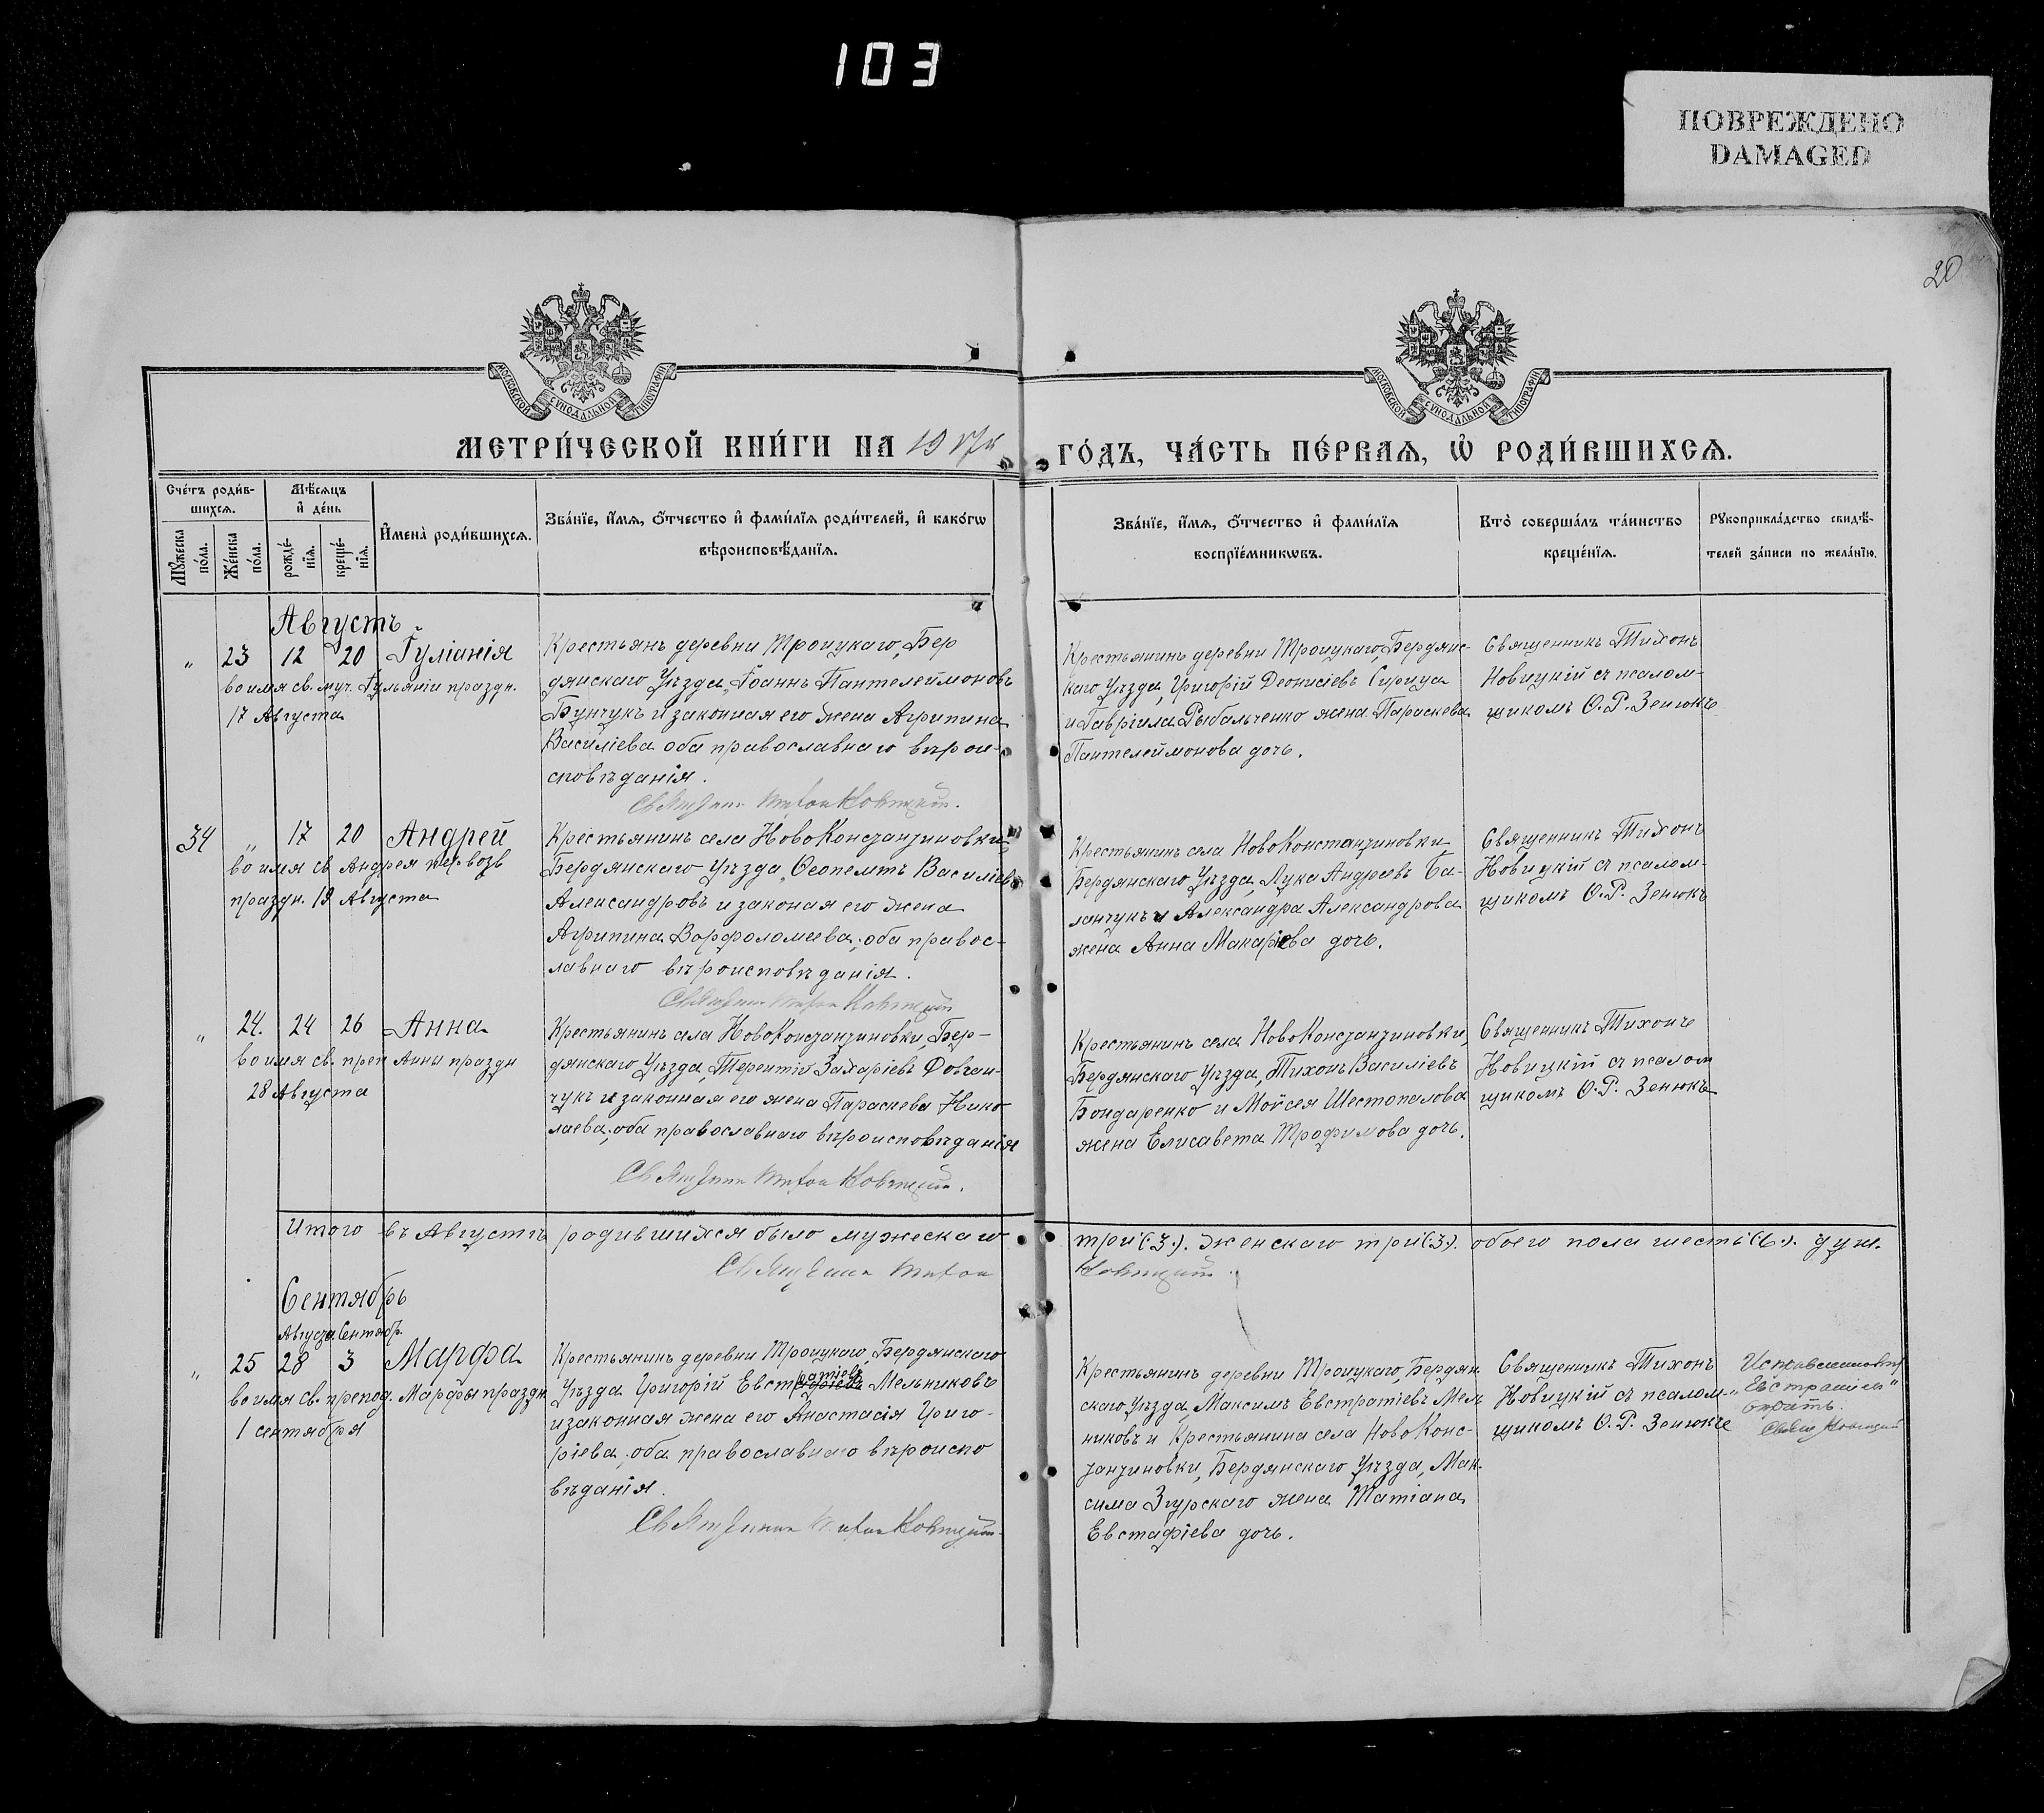 103
ПОВРЕЖДЕНО
DAMAGED
20
МОСКОВСКОЙ СѴНОДАЛЬНОЙ ТИПОГРАФІИ
МОСКОВСКОЙ СѴНОДАЛЬНОЙ ТИПОГРАФІИ
МЕТРИ́ЧЕСКОЙ КНИ́ГИ НА 19 го́дъ, ча́сть пе́рваѧ, ѡ҆ роди́вшихсѧ.
Сче́тъ роди́в-
шихсѧ.
Мѣ́сѧцъ
и҆ де́нь
Мꙋ́жеска
по́ла.
Же́нска
по́ла.
рожде́-
нїѧ.
креще́-
нїѧ.
И҆мена̀ роди́вшихсѧ.
Зва́нїе, и҆́мѧ, ѻ҆́тчество и҆ фами́лїѧ роди́телей, и҆ како́гѡ
вѣроисповѣ́данїѧ.
Зва́нїе, и҆́мѧ, ѻ҆́тчество и҆ фами́лїѧ
воспрїе́мникѡвъ.
Кто̀ соверша́лъ та́инство
креще́нїѧ.
Рꙋкоприкла́дство свидѣ́-
телей за́писи по жела́нїю.
Августъ
" 23 12 20 Іуліанія
во имя св. муч. Іульяніи праздн.
17 Августа
Крестьянъ деревни Троицкаго, Бер
дянскаго Уѣзда, Іоаннъ Пантелеймоновъ
Бунчукъ и законная его жена Агрипина
Василіева оба православнаго вѣрои-
сповѣданія.
Священ. Тихон Новицкій.
Крестьянинъ деревни Троицкаго, Бердянс-
каго Уѣзда, Григорій Деонисіевъ Сирица
и Гавріила Рыбальченко жена Параскева
Пантелеймонова дочь.
Священникъ Тихонъ
Новицкій съ псалом-
щикомъ Ѳ. Р. Зенюкъ
34 " 17 20 Андрей
во имя св Андрея первозв
праздн. 19 Августа
Крестьянинъ села НовоКонстантиновки,
Бердянскаго Уѣзда, Ѳеопемтъ Василіевъ
Александровъ и законая его жена
Агрипина Варфоломеева; оба правос-
лавнаго вѣроисповѣданія.
Священник Тихон Новицкій
Крестьянинъ села НовоКонстантиновки
Бердянскаго Уѣзда, Лука Андреевъ Ба-
ланчукъ и Александра Александрова
жена Анна Макаріева дочь.
Священникъ Тихонъ
Новицкій съ псалом-
щикомъ Ѳ. Р. Зенюкъ
" 24. 24 26 Анна
во имя св. преп Анны праздн
28 Августа
Крестьянинъ села НовоКонстантиновки, Бер-
дянскаго Уѣзда, Терентій Захаріевъ Довган-
чукъ и законная его жена Параскева Нико
лаева; оба православнаго вѣроисповѣданія
Священник Тихон Новицкій.
Крестьянинъ села НовоКонстантиновки,
Бердянскаго Уѣзда, Тихонъ Василіевъ
Бондаренко и Мойсея Шестопалова
жена Елисавета Трофимова дочь.
Священникъ Тихонъ
Новицкій съ псалом
щикомъ Ѳ. Р. Зенюкъ
Итого въ Августѣ родившихся было мужескаго три (3). женскаго три (3). обоего пола шесть (6). душ.
Священник Тихон Новицкій.
Сентябрь
Августа. Сентябр.
" 25 28 3 Марфа
во имя св. препод. Марфы праздн
1 сентября
Крестьянинъ деревни Троицкаго, Бердянскаго
Уѣзда Григорій Евстратіевъ Мельниковъ
и законная жена его Анастасія Григо-
ріева; оба православнаго вѣроиспо
вѣданія.
Священник Тихон Новицкій.
Крестьянинъ деревни Троицкаго, Бердян
скаго Уѣзда, Максимъ Евстратіевъ Мель
никовъ и Крестьянина села НовоКонс-
тантиновки, Бердянскаго Уѣзда, Мак-
сима Згурскаго жена Татіана
Евстафіева дочь.
Священникъ Тихонъ
Новицкій съ псалом-
щикомъ Ѳ. Р. Зенюкъ
"Евстратіев"
Свящ Новицкій